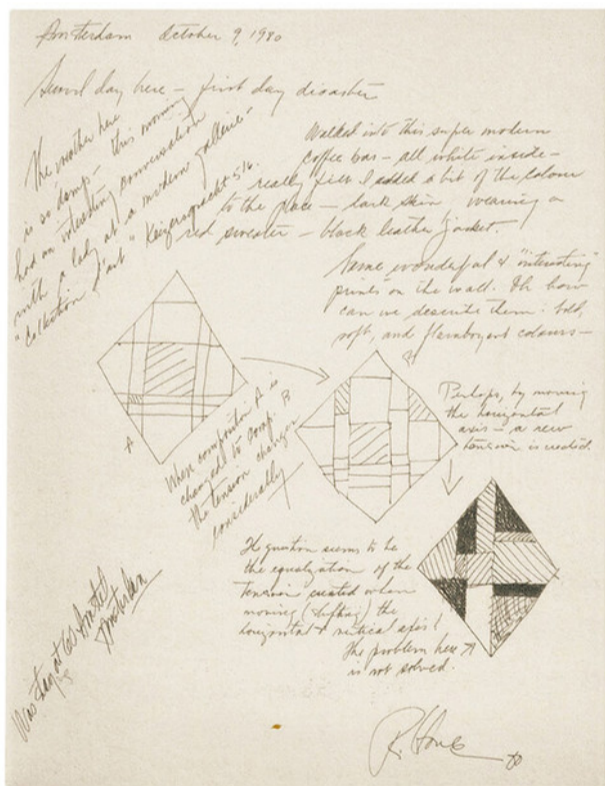 Amsterdam October 9, 1980
Second day here – first day disaster
The weather here
is so damp – this morning
had an interesting conversation
with a lady at a modern galleries –
"Collection d'art" Keizersgracht 516.
Walked into this super modern
coffee bar – all white inside –
really felt I added a bit of the colour
to the place – dark skin wearing a
red sweater – black leather jacket.
Some wonderful & "interesting"
prints on the wall. Oh how
can we describe them: bold,
soft, and flamboyant colours –
A
B
When composition A is
changed to comp. B
the tension changes
considerably
Perhaps, by moving
the horizontal
axis – a new
tension is created.
The question seems to be
the equalization of the
tension created when
moving (shifting) the
horizontal & vertical axis!
The problem here
is not solved.
Was stay at 60 Amstel
Amsterdam
R. Houle 80